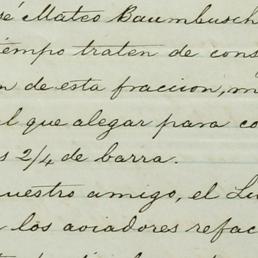 sé Mateo Baumbusch
iempo traten de cons
n de esta fraccion, m
l que alegar para co
s 2/4 de barra.
uestro amigo, el Lu
los aviadores refac